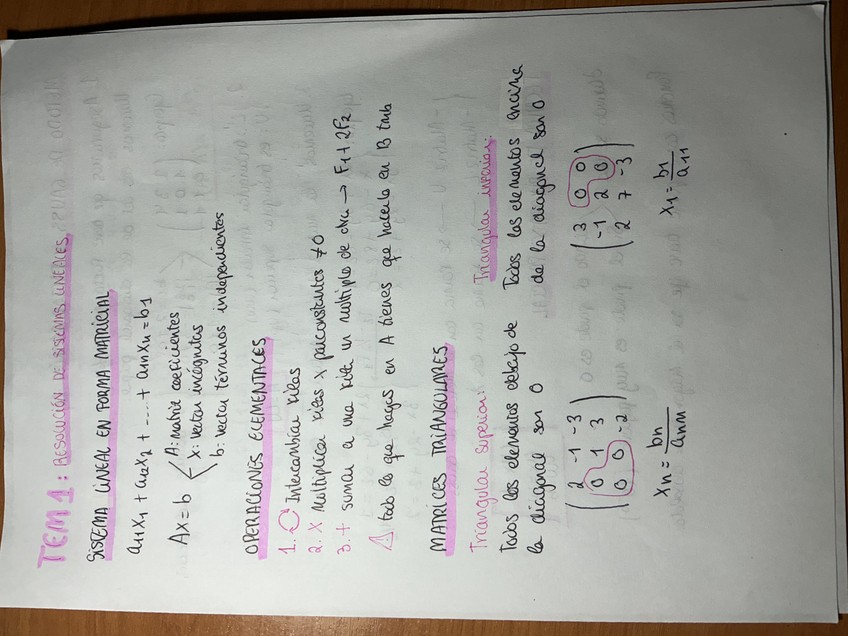 TEM 1: RESOLUCIÓN DE SISTEMAS LINEALES
SISTEMA LINEAL EN FORMA MATRICIAL
a11x1 + a12x2 + .... + a1nxn = b1
Ax = b
A: matriz coeficientes
x: vector incógnitas
b: vector términos independientes
OPERACIONES ELEMENTALES
1. Intercambiar filas
2. X Multiplicar filas x por constantes ≠0
3. + sumar a una fila un múltiplo de otra → F1 + 2F2
⚠ todo lo que hagas en A tienes que hacerlo en B tmb
MATRICES TRIANGULARES
Triangular superior
Todos los elementos debajo de
la diagonal son 0
2 -1 -3
0 1 3
0 0 -2
xn = bn / ann
Triangular inferior
Todos los elementos encima
de la diagonal son 0
3 0 0
-1 2 0
2 7 -3
x1 = b1 / a11